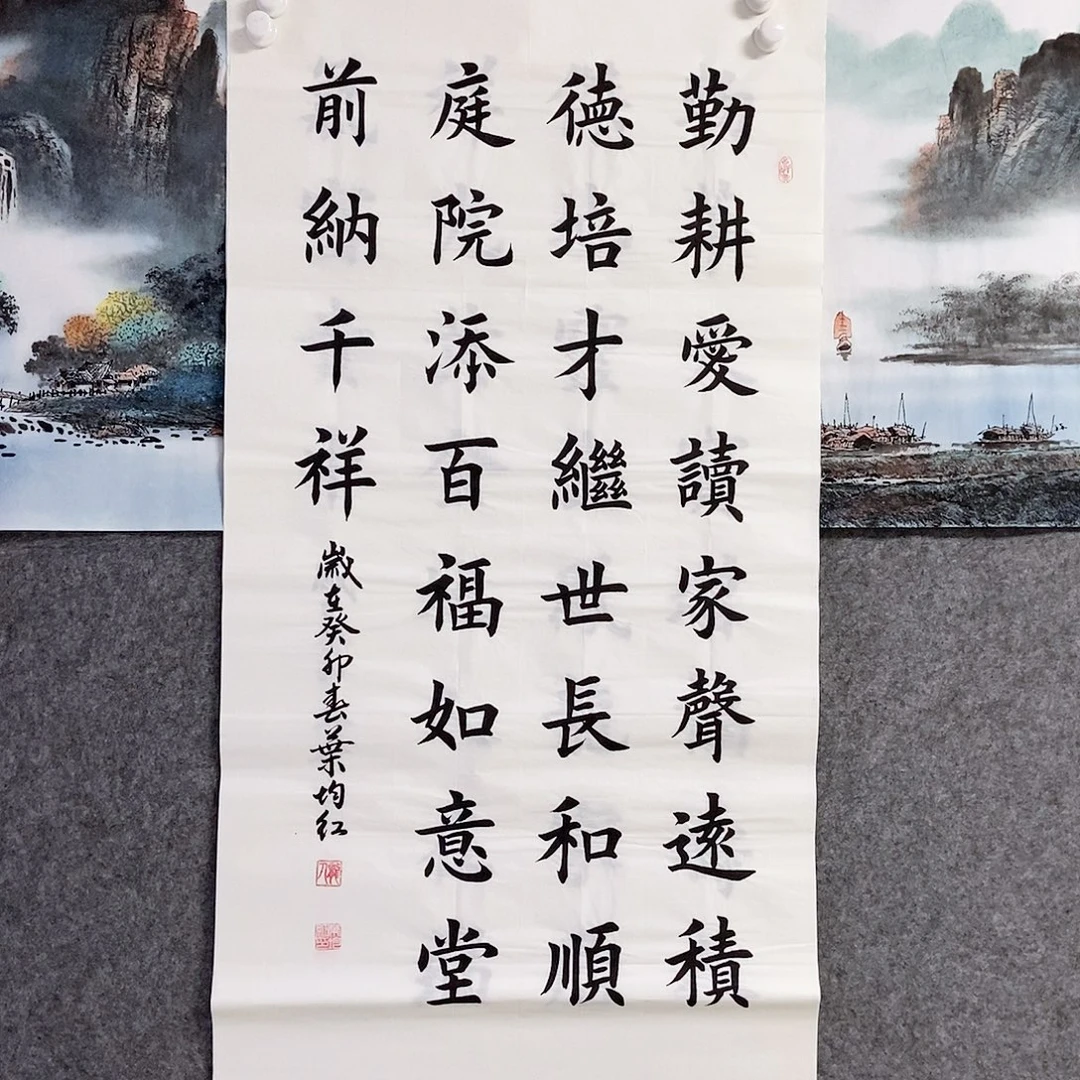 勤耕愛讀家聲遠積
德培才繼世長和順
庭院添百福如意堂
前納千祥
歲在癸卯春葉均红